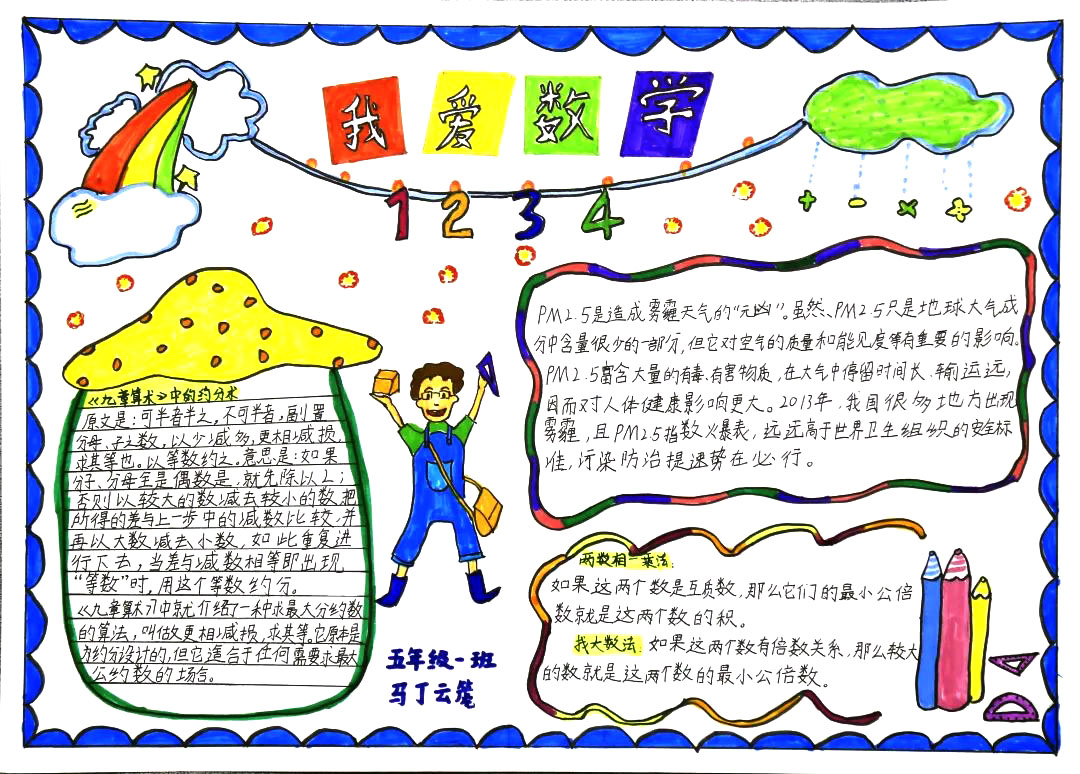 我爱数学
1 2 3 4
+ - × ÷
《九章算术》中的约分术
原文是:可半者半之,不可半者,副置
分母、子之数,以少减多,更相减损,
求其等也。以等数约之。意思是:如果
分子、分母全是偶数是,就先除以2;
否则以较大的数减去较小的数,把
所得的差与上一步中的减数比较,并
再以大数减去小数,如此重复进
行下去,当差与减数相等即出现
“等数”时,用这个等数约分。
《九章算术》中就介绍了一种求最大公约数
的算法,叫做更相减损,求其等。它原本是
为约分设计的,但它适合于任何需要求最大
公约数的场合。
五年级一班
马丁云
PM2.5是造成雾霾天气的“元凶”。虽然、PM2.5只是地球大气成
分中含量很少的一部分,但它对空气的质量和能见度等有重要的影响。
PM2.5富含大量的有毒、有害物质,在大气中停留时间长、输运远,
因而对人体健康影响更大。2013年,我国很多地方出现
雾霾,且PM2.5指数火爆表,远远高于世界卫生组织的安全标
准,污染防治提速势在必行。
两数相一乘法:
如果这两个数是互质数,那么它们的最小公倍
数就是这两个数的积。
找大数法:如果这两个数有倍数关系,那么较大
的数就是这两个数的最小公倍数。